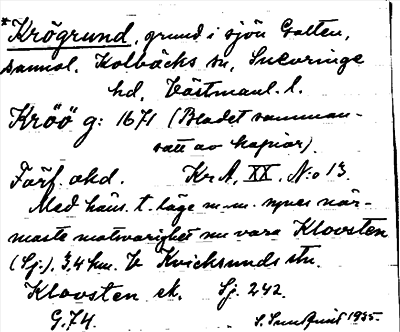 *Krögrund, grund i sjön Galten,
sannol. Kolbäcks sn, Snevringe
hd, Västmanl. l.
Kröö g: 1671 (Bladet samman-
satt av kopior).
Förf. okd. Kr A, XX, N:o 13.
Med häns. t. läge m.m. synes när-
maste motsvarighet nu vara Klovsten
(Sj:). 3,4 km. V Kvicksunds stn.
Klovsten ek. Sj. 242.
G.74. S. 1935.